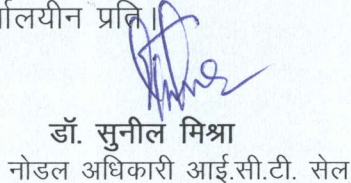 र्यालयीन प्रति।
डॉ. सुनील मिश्रा
नोडल अधिकारी आई.सी.टी. सेल